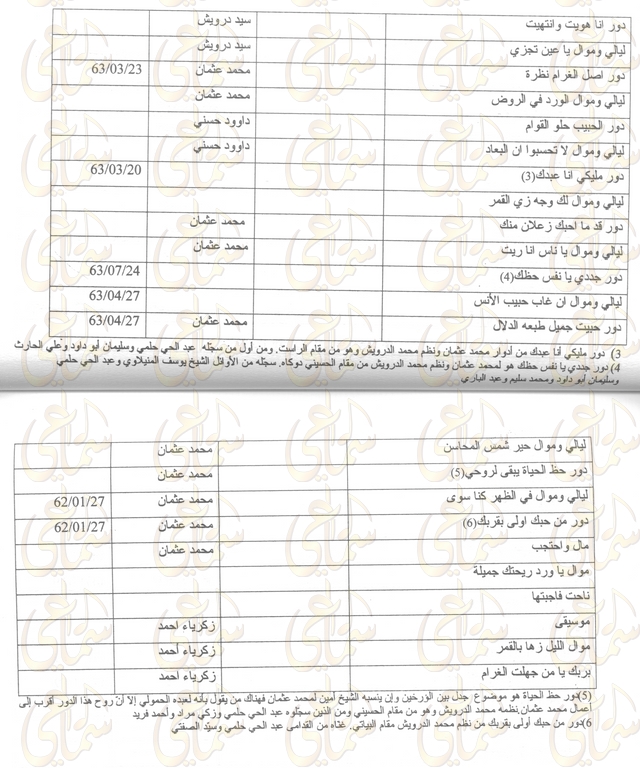 دور انا هويت وانتهيت سيد درويش
ليالي وموال يا عين تجزي سيد درويش
دور اصل الغرام نظرة محمد عثمان 63/03/23
ليالي وموال الورد في الروض محمد عثمان
دور الحبيب حلو القوام داوود حسني
ليالي وموال لا تحسبوا ان البعاد داوود حسني
دور مليكي انا عبدك(3) 63/03/20
ليالي وموال لك وجه زي القمر
دور قد ما احبك زعلان منك محمد عثمان
ليالي وموال يا ناس انا ريت محمد عثمان
دور جددي يا نفس حظك(4) 63/07/24
ليالي وموال ان غاب حبيب الأنس 63/04/27
دور حبيت جميل طبعه الدلال محمد عثمان 63/04/27
3) دور مليكي أنا عبدك من أدوار محمد عثمان ونظم محمد الدرويش وهو من مقام الراست. ومن أول من سجّله عبد الحي حلمي وسليمان أبو داود وعلي الحارث
4) دور جددي يا نفس حظك هو لمحمد عثمان ونظم محمد الدرويش من مقام الحسيني دوكاه. سجّله من الأوائل الشيخ يوسف المنيلاوي وعبد الحي حلمي
وسليمان أبو داود ومحمد سليم وعبد الباري
ليالي وموال حير شمس المحاسن محمد عثمان
دور حظ الحياة يبقى لروحي(5) محمد عثمان
ليالي وموال في الظهر كنا سوى محمد عثمان 62/01/27
دور من حبك اولى بقربك(6) محمد عثمان 62/01/27
مال واحتجب محمد عثمان
موال يا ورد ريحتك جميلة
ناحت فاجبتها
موسيقى زكرياء احمد
موال الليل زها بالقمر زكرياء أحمد
بربك يا من جهلت الغرام زكرياء احمد
(5)دور حظ الحياة هو موضوع جدل بين الؤرخين وإن ينسبه الشيخ أمين لمحمد عثمان فهناك من يقول بأنه لعبده الحمولي إلا أنّ روح هذا الدور أقرب إلى
أعمال محمد عثمان.نظمه محمد الدرويش وهو من مقام الحسيني ومن الذين سجّلوه عبد الحي حلمي وزكي مراد وأحمد فريد
6)دور من حبك أولى بقربك من نظم محمد الدرويش مقام البياتي. غنّاه من القدامى عبد الحي حلمي وسيّد الصفتي